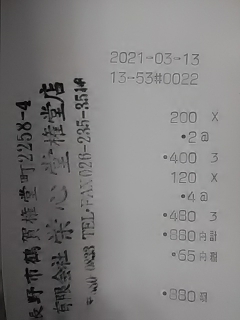 長野市鶴賀権堂町2258-4
有限会社 栄心堂権堂店
TEL・FAX026-235-3514
2021-03-13
13-53#0022
200 X
•2@
•400 3
120 X
•4@
•480 3
•880内計
•65内税
•880現